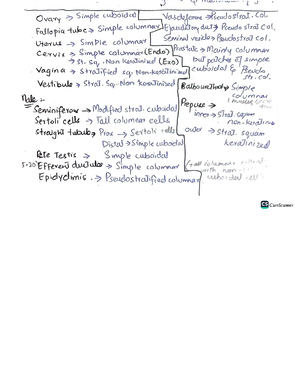 Ovary → Simple cuboidal
Fallopia tubee → Simple columnar
Uterus → Simple columnar
Cervix → Simple columnar (Endo)
→ St. Sq. Non Keratinised (Exo)
Vagina → Stratified sq. Non-keratinised
Vestibule → Strat. Sq. Non Keratinised
Male :-
Seminiferow → Modified strat. cuboidal
Sertoli cells → Tall columnar cells
Straight tubule → Prox → Sertoli cells
Distal → Simple cuboidal
Rete Testis → Simple cuboidal
Efferent ductules → Simple columnar
Epidydimis → Pseudostratified columnar
Vas deferens → Pseudostrat. Col.
Ejaculatory duct → Pseudo strat Col.
Seminal vesicle → Pseudostrat Col.
Prostate → Mainly columnar
but patches of simple
cuboidal & Pseudo
str. col.
Simple
columnar
Prepuce →
inner → Strat. squam
non-keratin
outer → Strat. squam
keratinized
tall columnar
with non
CS CamScanner